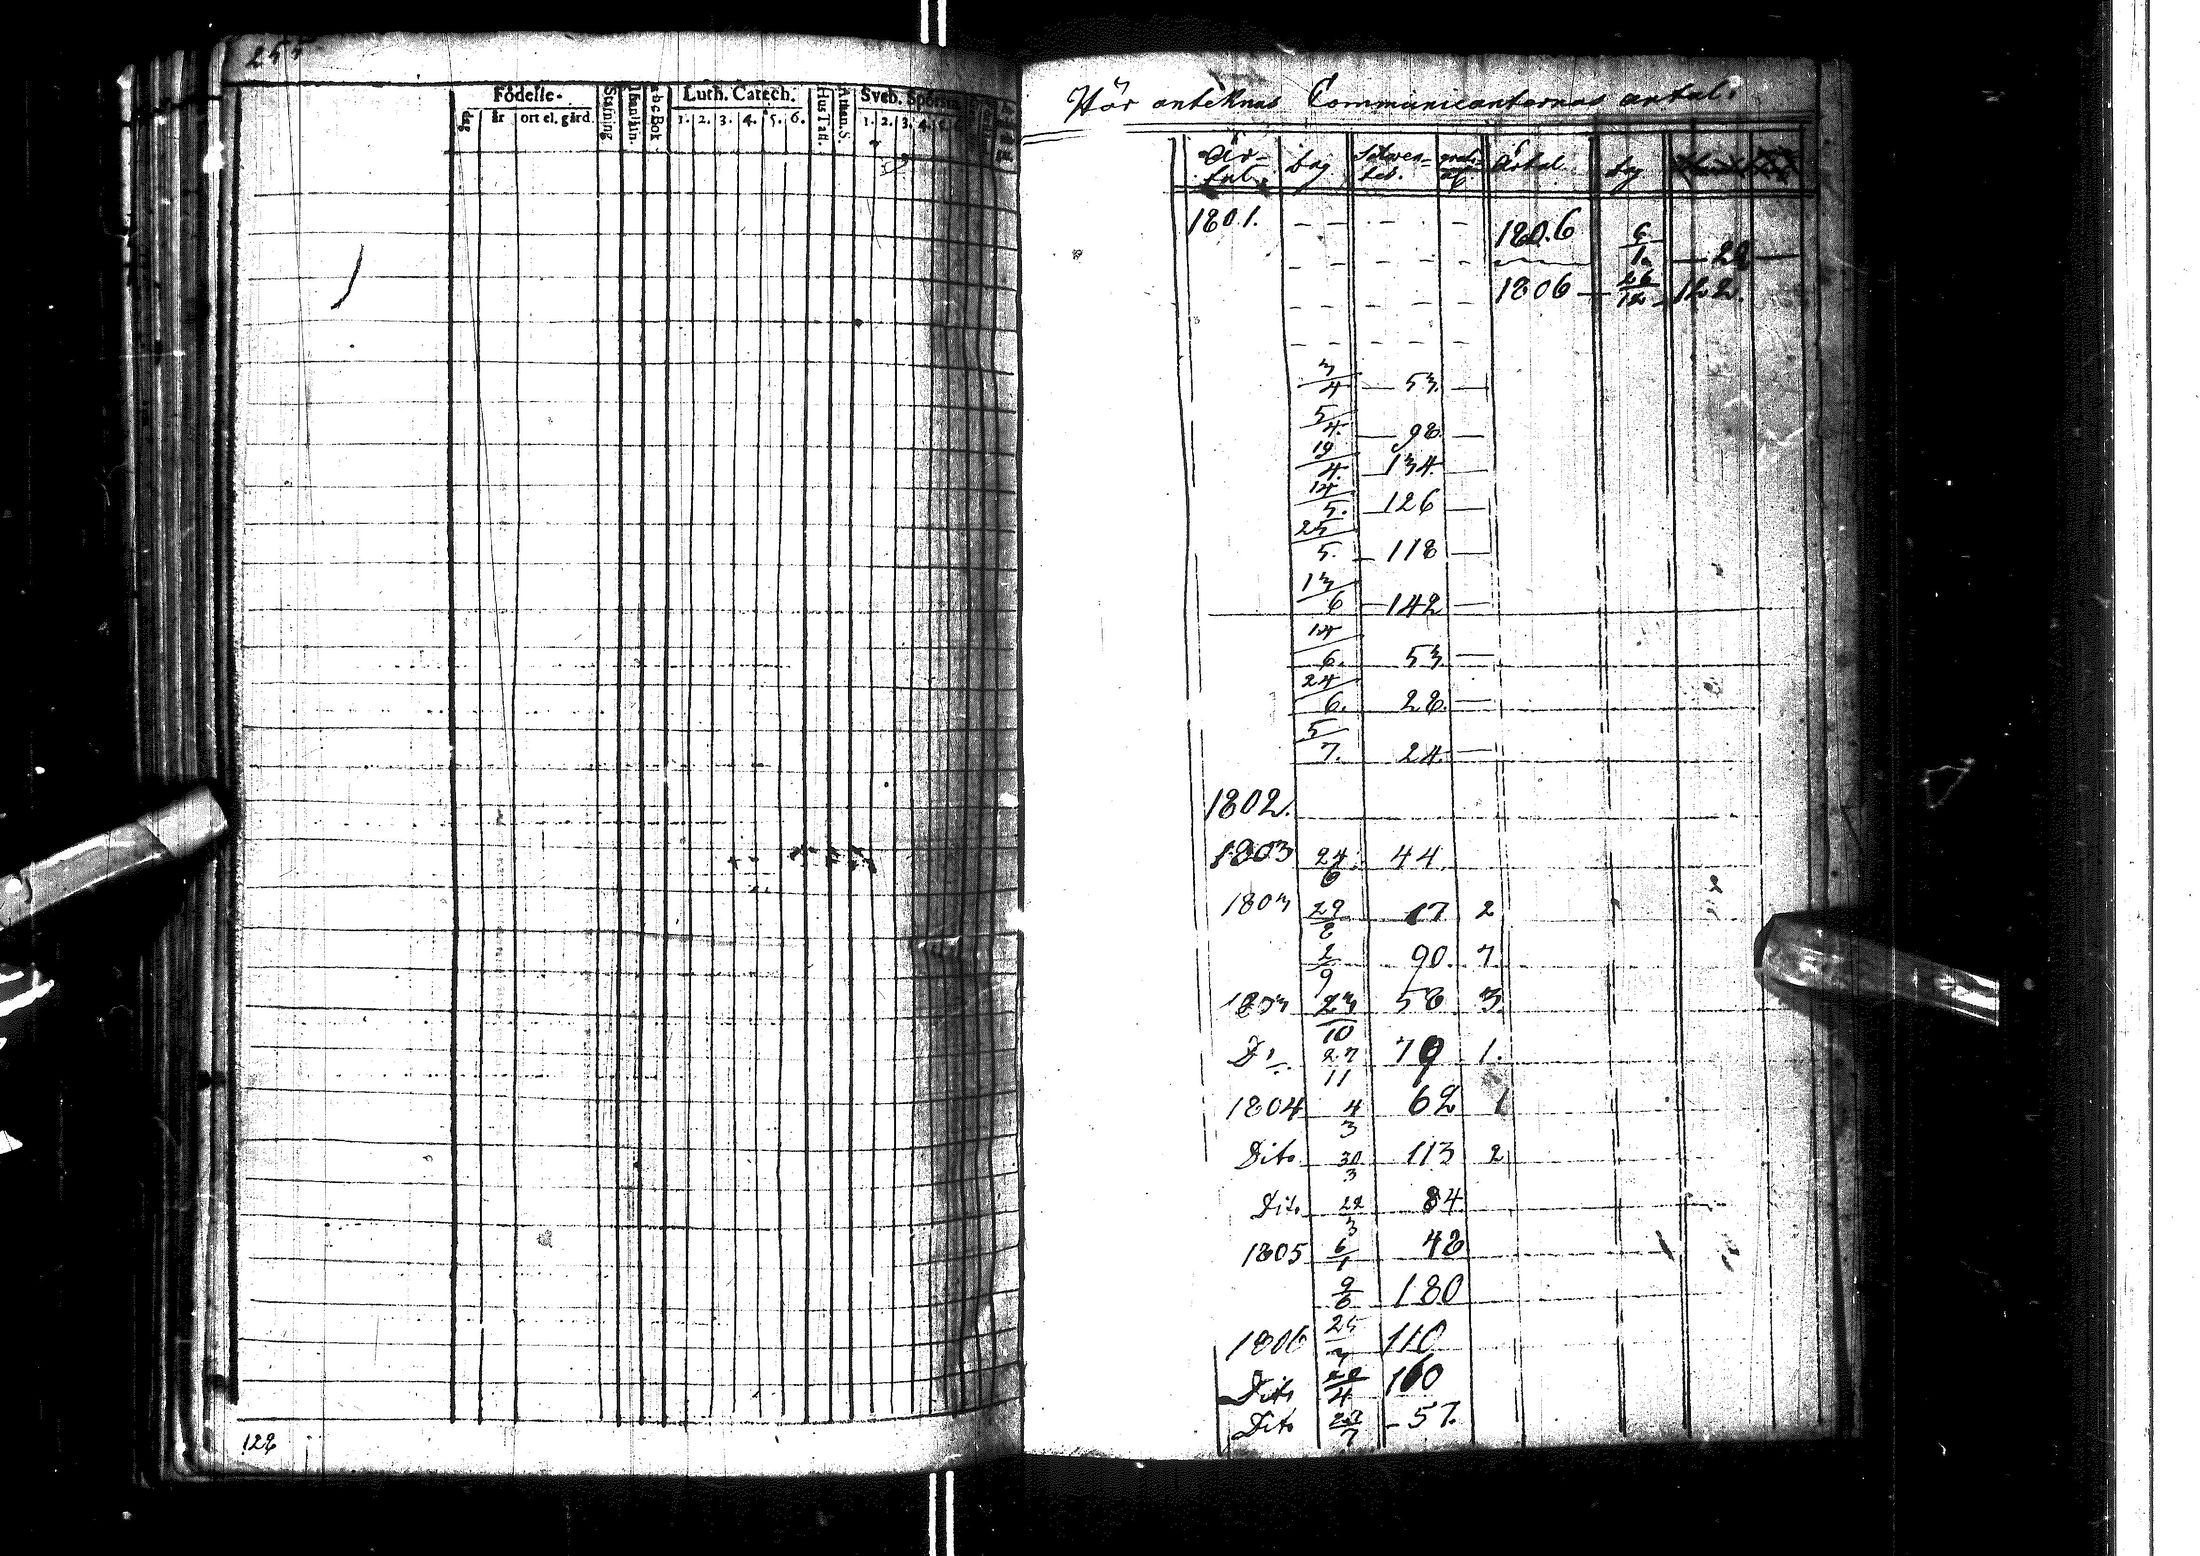 255
Födelse-
dag
år
ort el. gård.
Stafning
Innanläsn.
a b c Bok
Luth. Catech.
1. 2. 3. 4. 5. 6.
Hus Tafl.
Athan. S.
Sveb. Spörsm.
1. 2. 3. 4. 5. 6.
128
Hör anteknas Communicanternas antal.
År-tal. dag Årtal dag
1801. 1806 6/1 22
1806 26/12 122.
3/4 53.
5/4. 98.
19/4. 134
14/5. 126
25/5. 118
13/6 142
14/6. 53.
24/6. 28.
5/7. 24.
1802.
1803 24/6 44.
1803 29/8 17 2
2/9 90. 7.
1803 23/10 58 3.
Do 27/11 79 1.
1804 4/3 62 1
Dito 30/3 113 2
Dito 22/3 84.
1805 6/1 48
9/6 180
1806 25/3 110
Dito 22/4 160
Dito 27/7 57.